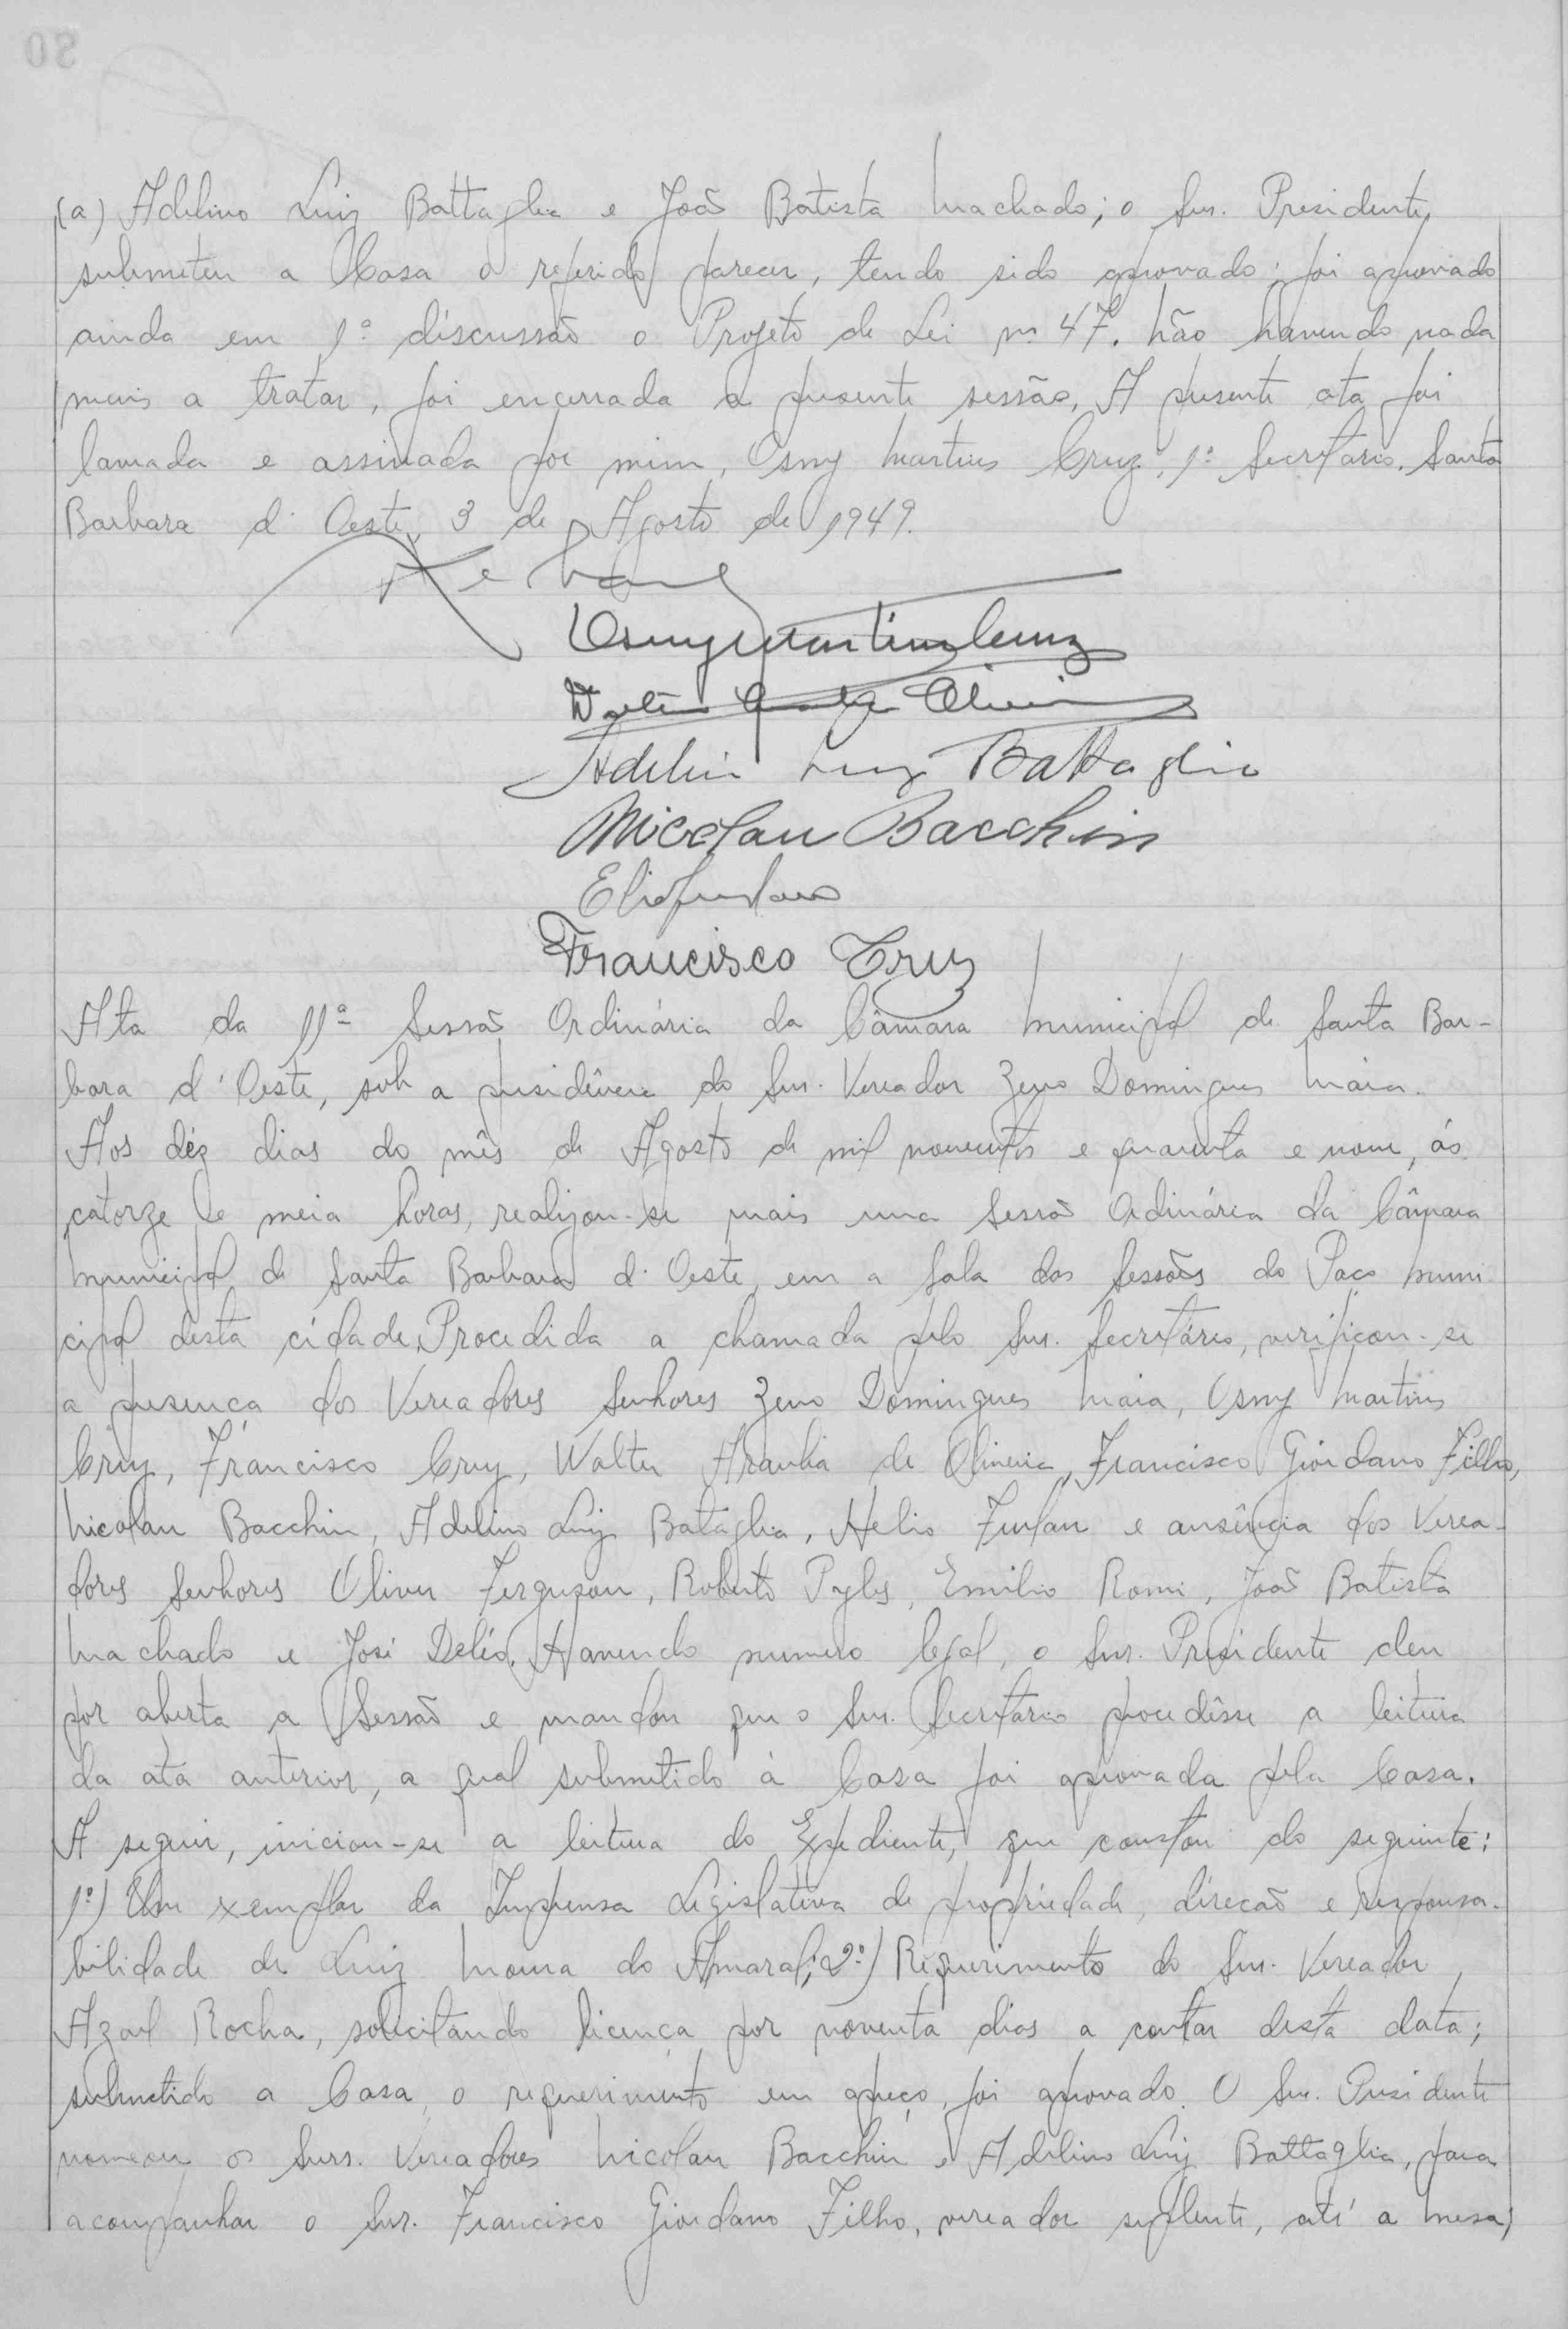 (a) Adelino Luiz Battaglia e João Batista Machado; o Snr. Presidente,
submeteu a Casa o referido parecer, tendo sido aprovado; foi aprovado
ainda em 1ª discussão o Projeto de Lei nº 47. Não havendo nada
mais a tratar, foi encerrada a presente sessão. A presente ata foi
lavrada e assinada por mim, Osny Martins Cruz, 1º Secretario. Santa
Barbara d'Oeste, 3 de Agosto de 1949.
Osny Martins Cruz
Oliveira
Adelino Luiz Battaglia
Nicolau Bacchin
Francisco Cruz
Ata da 11ª Sessão Ordinária da Câmara Municipal de Santa Bar-
bara d'Oeste, sob a presidência do Snr. Vereador Zeno Domingues Maia.
Aos déz dias do mês de Agosto de mil novecentos e quarenta e nove, ás
catorze e meia horas, realizou-se mais uma Sessão Ordinária da Câmara
Municipal de Santa Barbara d'Oeste, em a Sala das Sessões do Paço Muni
cipal desta cidade. Procedida a chamada pelo Snr. Secretário, verificou-se
a presença dos Vereadores Senhores Zeno Domingues Maia, Osny Martins
Cruz, Francisco Cruz, Walter Aranha de Oliveira, Francisco Giordano Filho,
Nicolau Bacchin, Adelino Luiz Bataglia, Helio Furlan e ausência dos Verea-
dores Senhores Oliver Ferguson, Roberto Pyles, Emilio Romi, João Batista
Machado e José Deléo. Havendo numero legal, o Snr. Presidente deu
por aberta a Sessão e mandou que o Snr. Secretario procedêsse a leitura
da ata anterior, a qual submetido à Casa foi aprovada pela Casa.
A seguir, iniciou-se a leitura do Expediente, que constou do seguinte:
1º) Um exemplar da Imprensa Legislativa de propriedade, direcão e responsa-
bilidade de Luiz Moura do Amaral; 2º) Requerimento do Snr. Vereador
Azael Rocha, solicitando licença por noventa dias a contar desta data;
submetido a Casa, o requerimento em apreço, foi aprovado. O Snr. Presidente
nomeou os Snrs. Vereadores Nicolau Bacchin e Adelino Luiz Battaglia, para
acompanhar o Snr. Francisco Giordano Filho, vereador suplente, até a Mesa,